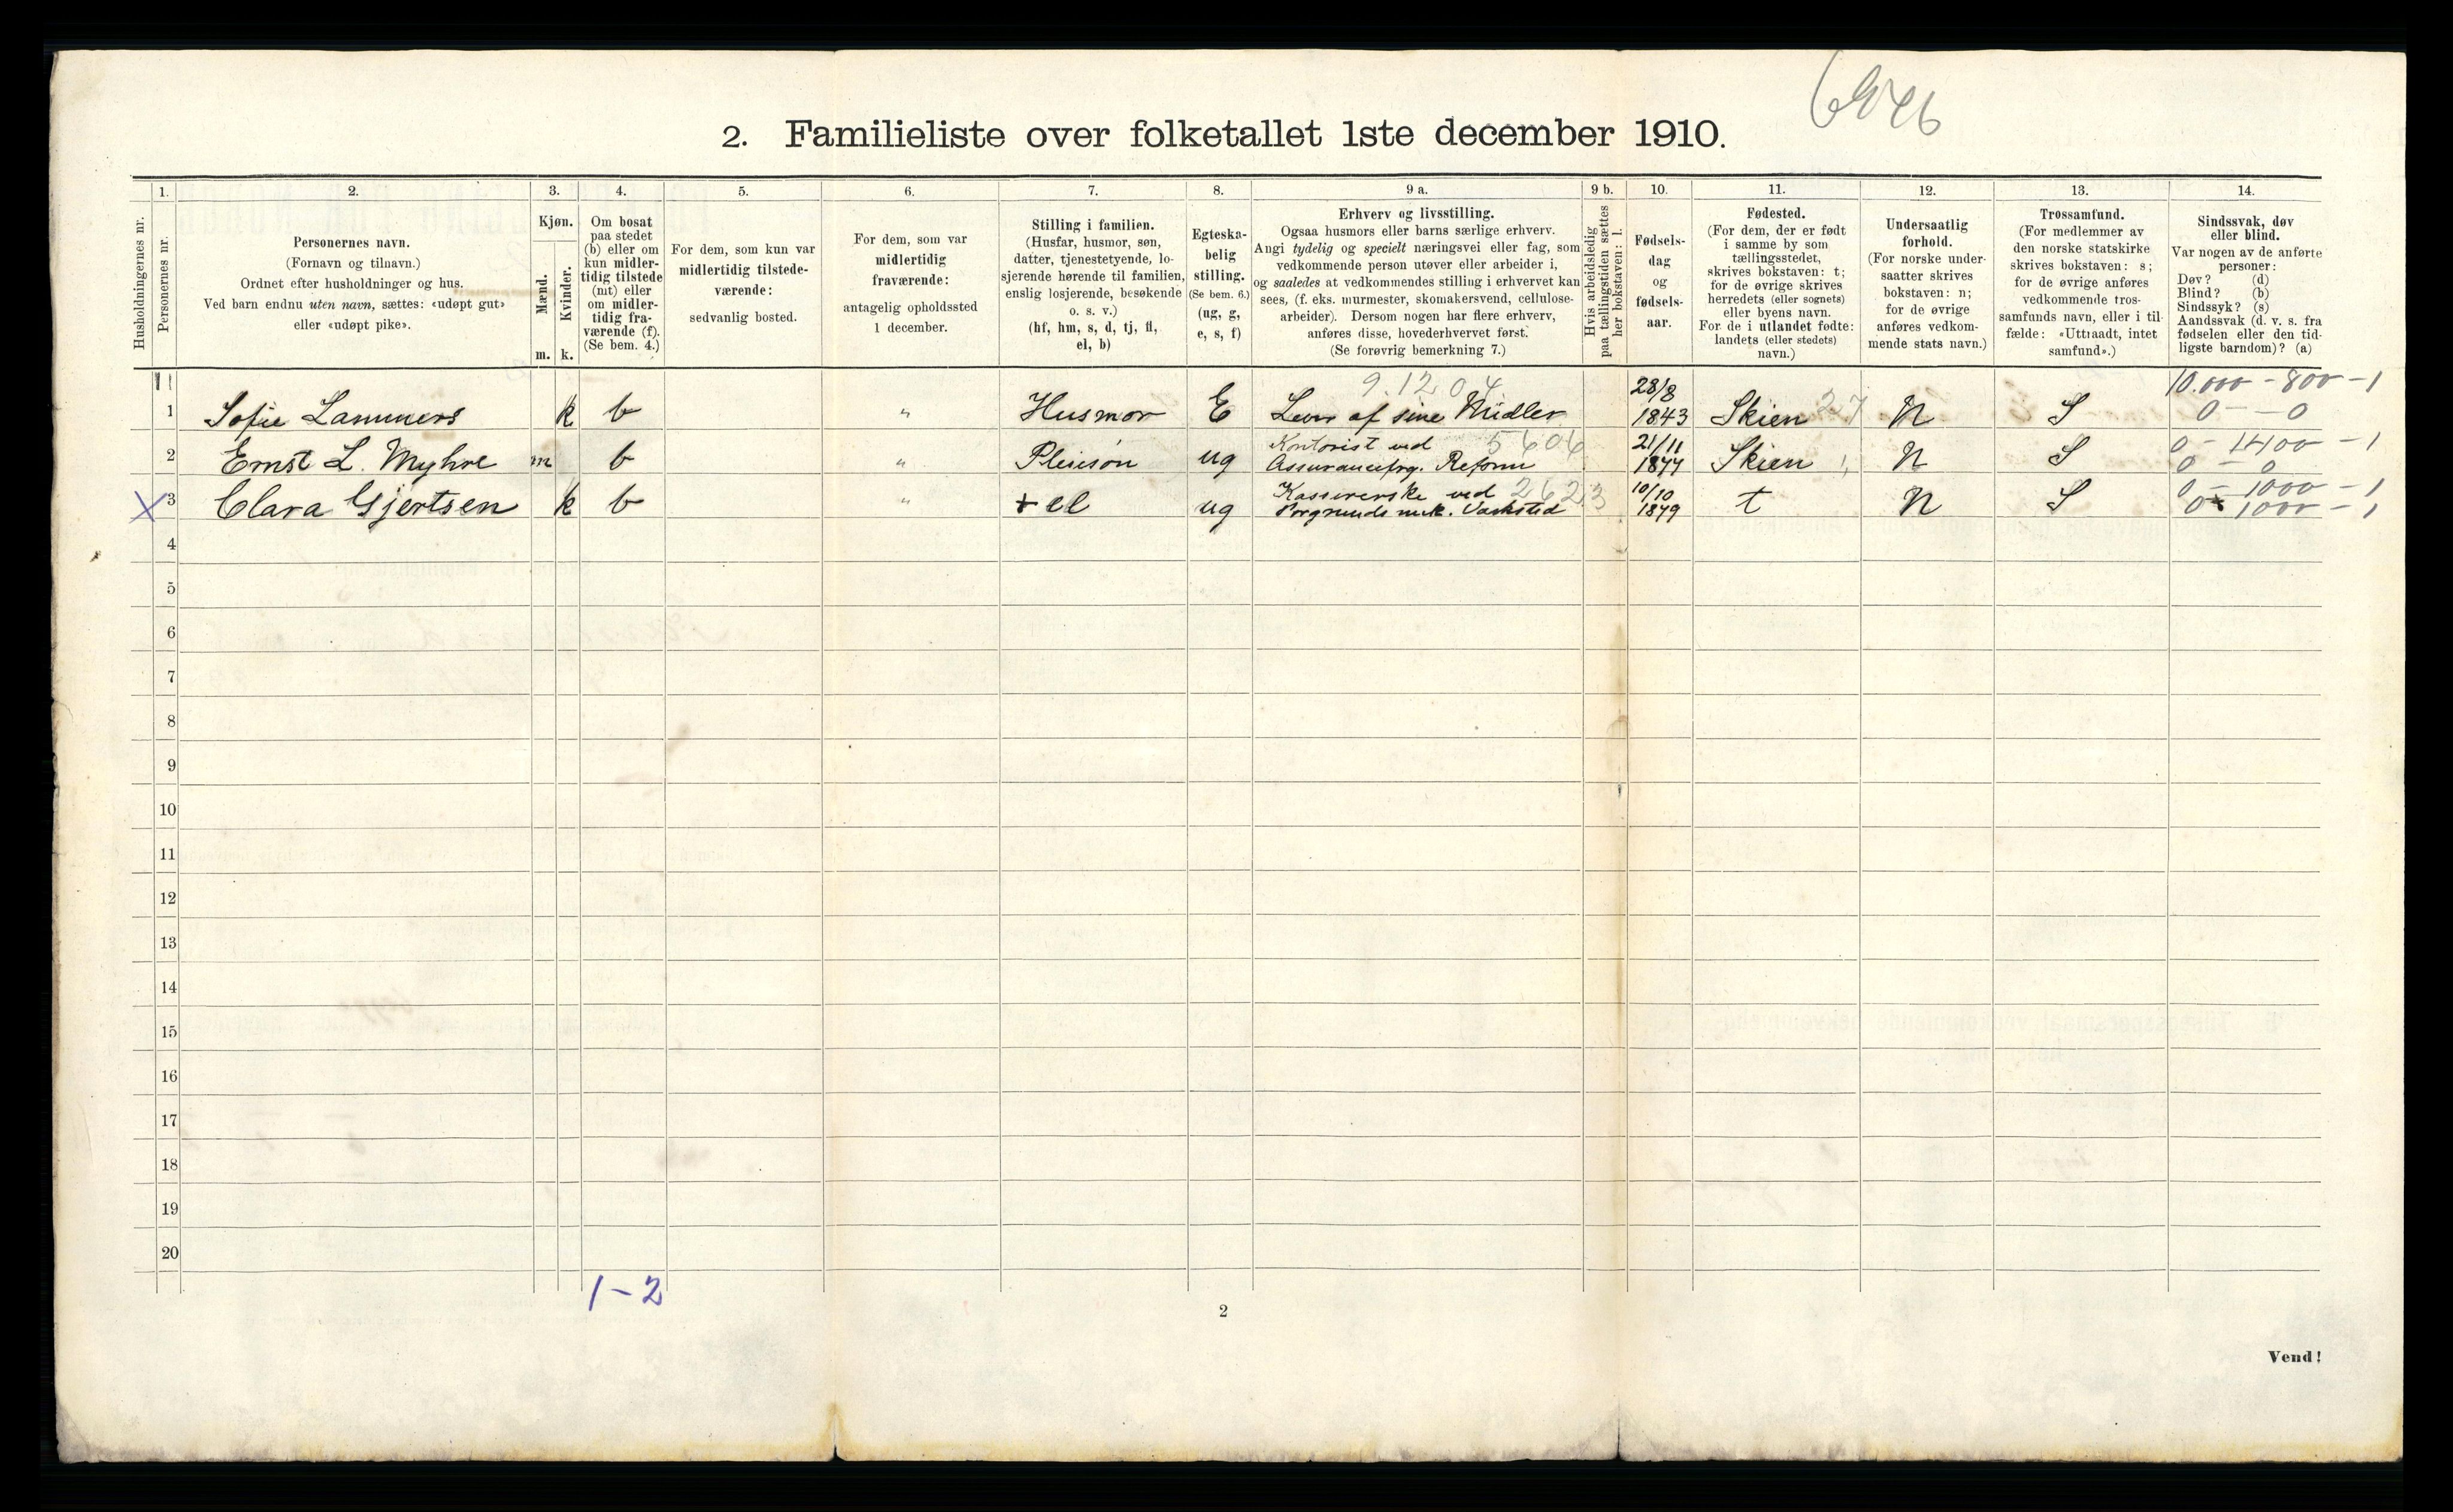 2. Familieliste over folketallet 1ste december 1910.
1. 2. 3. 4. 5. 6. 7. 8. 9 a. 9 b. 10. 11. 12. 13. 14.
Husholdningernes nr.
Personernes nr.
Personernes navn.
(Fornavn og tilnavn.)
Ordnet efter husholdninger og hus.
Ved barn endnu uten navn, sættes: «udøpt gut»
eller «udøpt pike».
Kjøn.
Mænd.
Kvinder.
m. k.
Om bosat
paa stedet
(b) eller om
kun midler-
tidig tilstede
(mt) eller
om midler-
tidig fra-
værende (f).
(Se bem. 4.)
For dem, som kun var
midlertidig tilstede-
værende:
sedvanlig bosted.
For dem, som var
midlertidig
fraværende:
antagelig opholdssted
1 december.
Stilling i familien.
(Husfar, husmor, søn,
datter, tjenestetyende, lo-
sjerende hørende til familien,
enslig losjerende, besøkende
o. s. v.)
(hf, hm, s, d, tj, fl,
el, b)
Egteska-
belig
stilling.
(Se bem. 6.)
(ug, g,
e, s, f)
Erhverv og livsstilling.
Ogsaa husmors eller barns særlige erhverv.
Angi tydelig og specielt næringsvei eller fag, som
vedkommende person utøver eller arbeider i,
og saaledes at vedkommendes stilling i erhvervet kan
sees, (f. eks. murmester, skomakersvend, cellulose-
arbeider). Dersom nogen har flere erhverv,
anføres disse, hovederhvervet først.
(Se forøvrig bemerkning 7.)
Hvis arbeidsledig
paa tællingstiden sættes
her bokstaven: l.
Fødsels-
dag
og
fødsels-
aar.
Fødested.
(For dem, der er født
i samme by som
tællingsstedet,
skrives bokstaven: t;
for de øvrige skrives
herredets (eller sognets)
eller byens navn.
For de i utlandet fødte:
landets (eller stedets)
navn.)
Undersaatlig
forhold.
(For norske under-
saatter skrives
bokstaven: n;
for de øvrige
anføres vedkom-
mende stats navn.)
Trossamfund.
(For medlemmer av
den norske statskirke
skrives bokstaven: s;
for de øvrige anføres
vedkommende tros-
samfunds navn, eller i til-
fælde: «Uttraadt, intet
samfund».)
Sindssvak, døv
eller blind.
Var nogen av de anførte
personer:
Døv? (d)
Blind? (b)
Sindssyk? (s)
Aandssvak (d. v. s. fra
fødselen eller den tid-
ligste barndom)? (a)
9.12 04 28/8 10.000 - 800 - 1
1 Sofie Lammers k b " Husmor E Lever af sine Midler 1843 Skien 27 N S 0 - 0
Kontorist ved 5606 21/11 0 - 1400 - 1
2 Ernst L. Myhre m b " Pleiesøn ug Assurancefrg. Reform 1877 Skien N S 0 - 0
Kassererske ved 2623 10/10 0 - 1000 - 1
X 3 Clara Gjertsen k b " + el ug Porgrunds mek. Værksted 1879 t N S 0 1000 - 1
4
5
6
7
8
9
10
11
12
13
14
15
16
17
18
19
20
1-2
2
Vend!